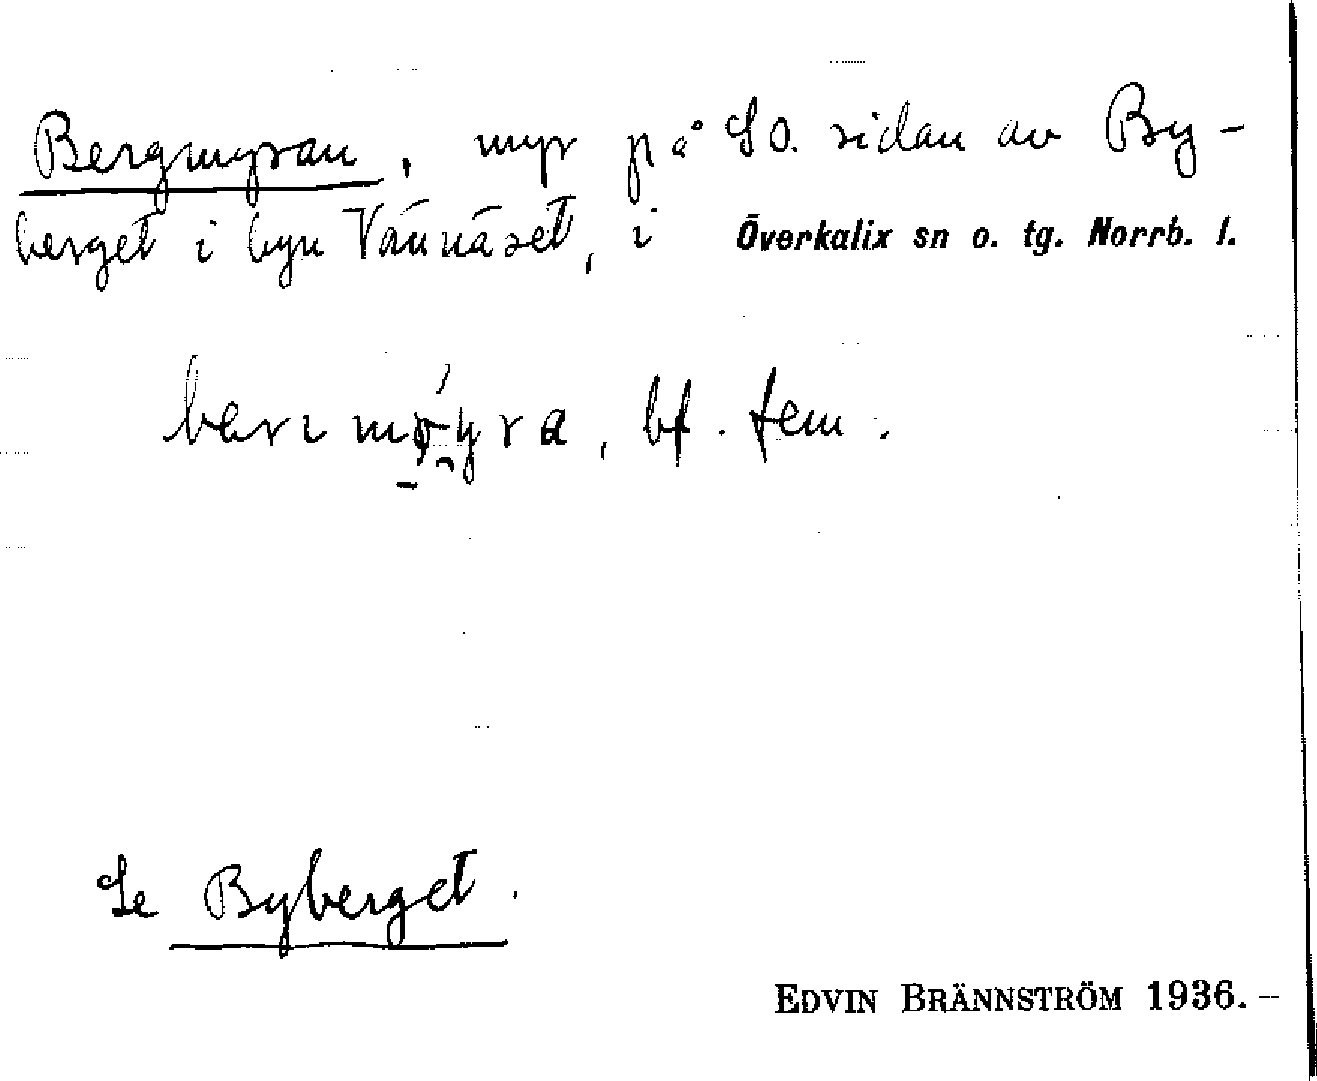 Bergmyran, myr på SO. sidan av By-
berget i byn Vännäset, i Överkalix sn o. tg. Norrb. l.
bf. fem.
Se Byberget.
EDVIN BRÄNNSTRÖM 1936. –